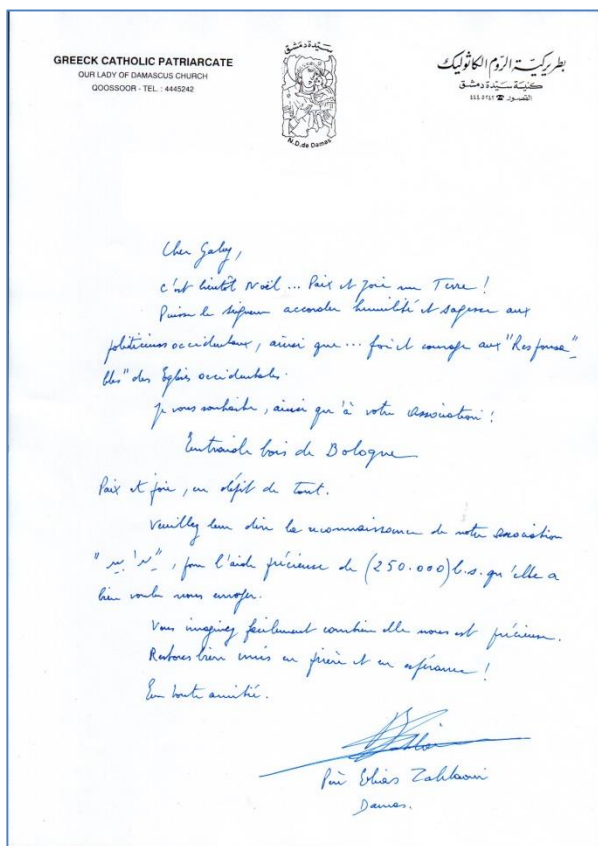 GREECK CATHOLIC PATRIARCATE
OUR LADY OF DAMASCUS CHURCH
QOOSSOOR - TEL. : 4445242
سيّدة دمشق
N.D. de Damas
بطريركيّة الروم الكاثوليك
كنيسة سيّدة دمشق
القصور ☎ ٤٤٤٥٢٤٢
Cher Gaby,
c'est bientôt Noël ... Paix et Joie sur Terre !
Puisse le Seigneur accorder humilité et sagesse aux
politiciens occidentaux, ainsi que ... foi et courage aux "Responsa-
bles" des Eglises occidentales.
Je vous souhaite, ainsi qu'à votre association :
Entraide bois de Bologne
Paix et joie, en dépit de tout.
Veuillez leur dire la reconnaissance de notre association
pour l'aide précieuse de (250.000) l.s. qu'elle a
bien voulu nous envoyer.
Vous imaginez facilement combien elle nous est précieuse.
Restons bien unis en prière et en espérance !
En toute amitié.
Père Elias Zahlaoui
Damas.